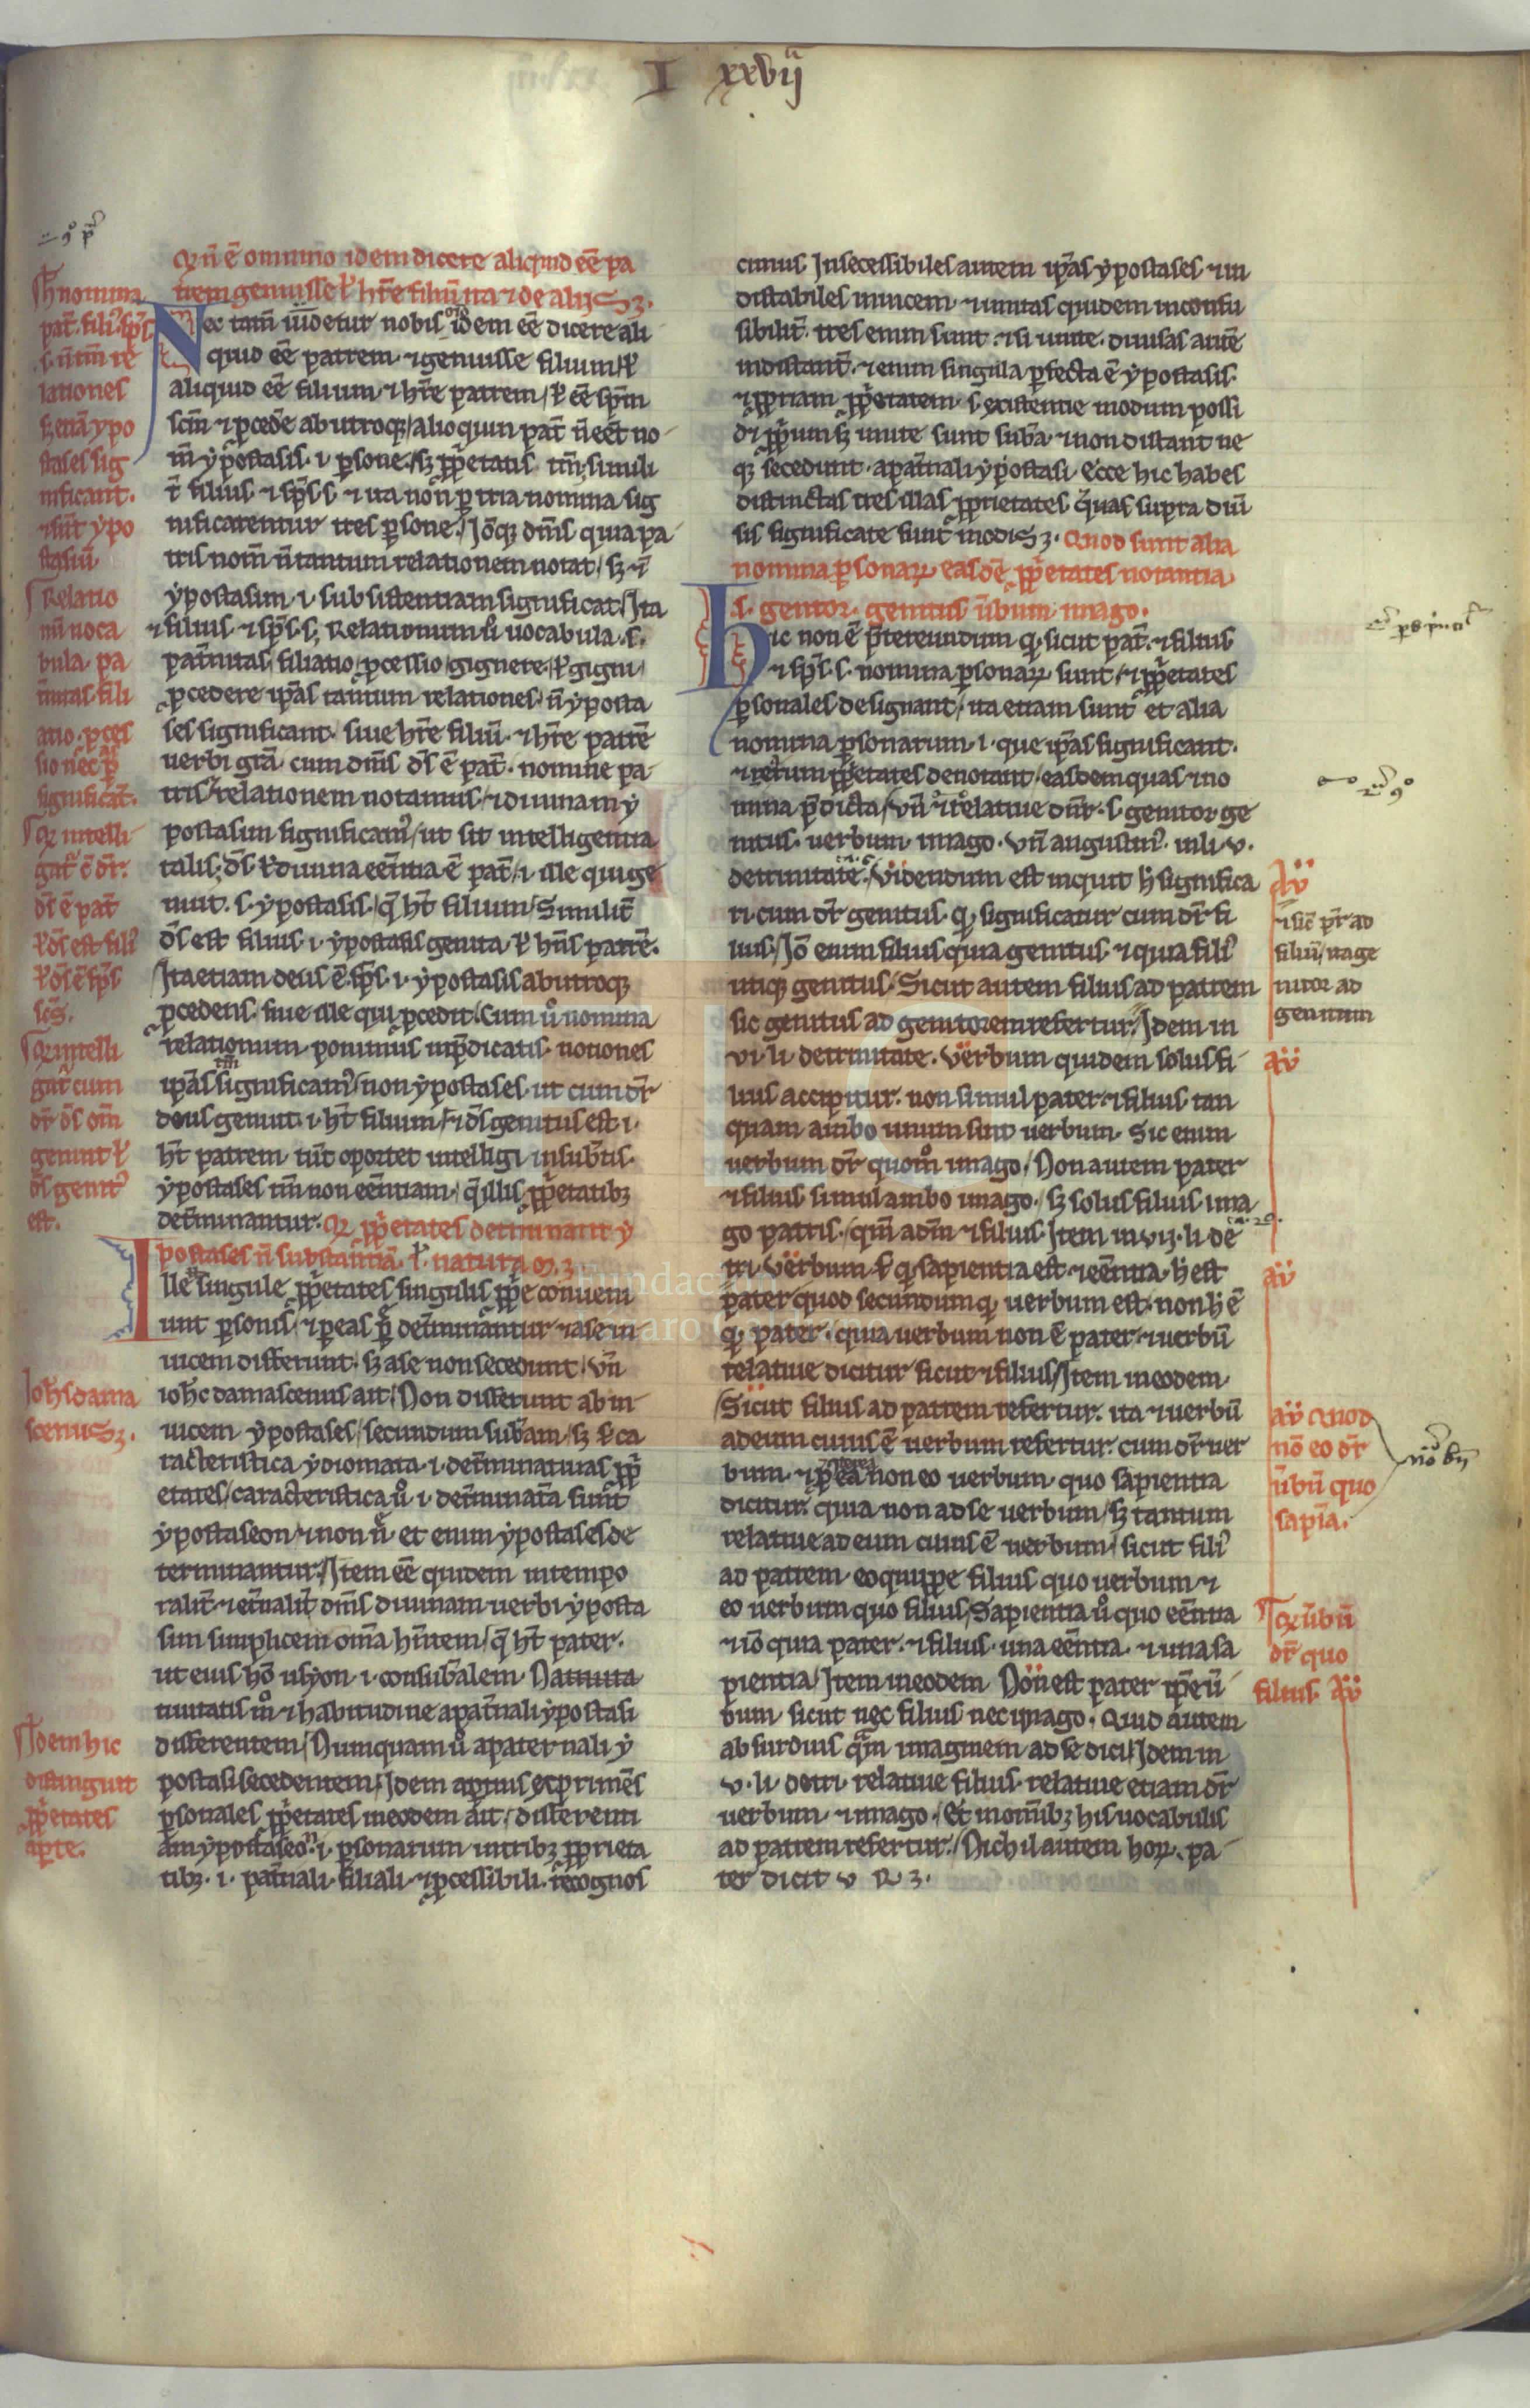 I xxvij
Qd n̄ ē omnino idem dicere aliquid eē pa
trem genuisse ł hr̄e filiū ita ⁊ de alijs.
Nec tam̄ uidetur nobis idem eē dicere ali
quid eē patrem ⁊ genuisse filium, ł
aliquid eē filium ⁊ hr̄e patrem, ł eē sp̄m
sc̄m ⁊ p̱cedē ab utroqꝫ, alioquin pat̄ n̄ eēt no
m̄ ypostasis .i. p̱sone, sꝫ pp̱etatis tm̄, simili
t̄ filius ⁊ sp̄s s. ⁊ ita non p̱ tria nomina sig
nificarentur tres p̱sone. Iōqꝫ dm̄s quia pa
tris nom̄ n̄ tantum relationem notat, sꝫ ⁊
ypostasim .i. subsistentiam significat. Ita
⁊ filius ⁊ sp̄s s. Relationum ů uocabula .s.
pat̄nitas, filiatio, p̱cessio, gignere, ł gigni,
p̱cedere ip̄as tantum relationes, n̄ yposta
ses significant. siue hr̄e filiū ⁊ hr̄e patrē
uerbi grā. cum dm̄s ds̄ ē pat̄. nomine pa
tris ⁊ relationem notamus, ⁊ diuinam y
postasim significam⁹, ut sit intelligentia
talis, ds̄ ł diuina eēntia ē pat̄, .i. ille qui ge
nuit .s. ypostasis, q̄ ht̄ filium, Similit̄
ds̄ est filius .i. ypostasis genita, ł hn̄s patrē.
Ita etiam deus ē sp̄s .i. ypostasis ab utroqꝫ
p̱cedens. siue ille qui p̱cedit. Cum ů nomina
relationum ponimus in p̄dicatis. notiones
ip̄as tm̄ significam⁹, non ypostases. ut cum dr̄
deus genuit .i. ht̄ filium, ⁊ ds̄ genitus est .i.
ht̄ patrem. tūc oportet intelligi in sub̄tis
ypostases tm̄ non eēntiam, q̄ illis pp̱etatibꝫ
det̄minantur. Qd pp̱etates det̄minant y
postases n̄ substantiā .i. naturam.
Ille singule pp̱etates singulis pp̱e conueni
unt p̱sonis, ⁊ p̱ eas det̄minantur ⁊ a se in
uicem differunt. sꝫ a se non secedunt, Vn̄
ioh̄s damascenus ait, Non differunt ab in
uicem ypostases, secundum sub̄am, sꝫ ca
racteristica ydiomata .i. det̄minatiuas pp̱
etates, caracteristica ů .i. det̄minatīa sunt
ypostaseon ⁊ non n̄e et enim ypostases de
terminantur. Item eē quidem intempo
ralit̄ ⁊ et̄nalit̄ dm̄s diuinam uerbi yposta
sim simplicem om̄a hn̄tem, q̄ ht̄ pater.
ut eius hō usyon .i. consub̄alem. Natiuita
tiuitatis m̊ ⁊ habitudine a pat̄nali ypostasi
differentem, Numquam ů a paternali y
postasi secedentem, Idem aptius exprimēs
p̱sonales pp̱etates in eodem ait, differenti
am ypostaseōn .i. p̱sonarum in tribꝫ p̱prieta
tibꝫ .i. pat̄nali filiali ⁊ p̱cessibili. recognos
cimus. Insecessibiles autem ip̄as ypostases ⁊ in
distabiles inuicem ⁊ unitas quidem inconfu
sibilit̄. tres enim sunt ⁊ si unite. diuisas autē
indistant̄. ⁊ enim singula p̱fecta ē ypostasis.
⁊ p̱priam pp̱etatem .s. existentie modum possi
d̄t p̱prium sꝫ unite sunt sub̄a ⁊ non distant ne
qꝫ secedunt a pat̄nali ypostasi. Ecce hic habes
distinctas tres illas p̱prietates quas supra diū
sis significate sunt modis. Quod sunt alia
nomina p̱sonarꝫ easdē pp̱etates notantia
.s. genitor. genitus. ūbum. imago.
Hic non ē p̄tereundum qꝫ sicut pat̄ ⁊ filius
⁊ sp̄s s. nomina p̱sonarꝫ sunt, ⁊ pp̱etates
p̱sonales designant, ita etiam sunt et alia
nomina p̱sonarum .i. que ip̄as significant.
⁊ rerum pp̱etates denotant, easdem quas ⁊ no
mina p̄dicta, Vn̄ ⁊ relatiue dn̄r .s. genitor ge
nitus. uerbum imago. Vn̄ augustin⁹ in li. v.
de trinitate. Videndum est inquit h̄ significa
ri cum dr̄ genitus. qꝫ significatur cum dr̄ fi
lius, Iō enim filius quia genitus ⁊ quia fili⁹
utiqꝫ genitus. Sicut autem filius ad patrem
sic genitus ad genitorem refertur. Idem in
vi. li. de trinitate. Verbum quidem solus fi
lius accipitur. non simul pater ⁊ filius tan
quam ambo unum sint uerbum. sic enim
uerbum dr̄ quom̊ imago, Non autem pater
⁊ filius simul ambo imago. sꝫ solus filius ima
go patris, qm̄ adm̄ ⁊ filius. Item in vij. li. de
tri. Verbum qꝫ sapientia est ⁊ eēntia. h̄ est
pater quod secundum qꝫ uerbum est. non h̄ ē
qꝫ pater. quia uerbum non ē pater. ⁊ uerbū
relatiue dicitur sicut ⁊ filius, Item in eodem.
Sicut filius ad patrem refertur. ita ⁊ uerbū
ad eum cuius ē uerbum refertur. cum dr̄ uer
bum. ⁊ p̱p̄ea non eo uerbum quo sapientia
dicitur. quia non ad se uerbum, sꝫ tantum
relatiue ad eum cuius ē uerbum, sicut fili⁹
ad patrem. eo quippe filius quo uerbum ⁊
eo uerbum quo filius, Sapientia ů quo eēntia
⁊ iō quia pater. ⁊ filius. una eēntia. ⁊ una sa
pientia, Item in eodem. Non est pater ip̄e ū
bum sicut nec filius nec imago. Quid autem
absurdius q̄m imaginem ad se dici, Idem in
v. li. de tri. relatiue filius. relatiue etiam dr̄
uerbum ⁊ imago. Et in om̄ibꝫ his uocabulis
ad patrem refertur. Nichil autem horꝫ. pa
ter dicit v R
Qꝫ nomina
pat̄. fili⁹. sp̄s
s. n̄ tm̄ re
lationes
sꝫ etiā ypo
stases sig
nificant.
⁊ sūt ypo
stasiū.
Relatio
nū uoca
bula. pa
t̄nitas. fili
atio. p̱ces
sio nec p̱
significāt.
Qd intelli
gīt cū dr̄.
ds̄ ē pat̄
ł ds̄ est fili⁹
ł ds̄ ē sp̄s
sc̄s.
Qd intelli
gīt cum
dr̄ ds̄ om̄
genuit ł
ds̄ genit⁹
est.
Ioh̄s dama
scenus.
Idem hic
distinguit
pp̱etates
ap̱te.
Aug̃
⁊ sic pr̄ ad
filiū, ita ge
nitor ad
genitum
Aug̃
Aug̃
Aug̃ Quod
nō eo dr̄
ūbū quo
sapīa.
Qd ūbū
dr̄ quo
filius. Aug̃
Fundación